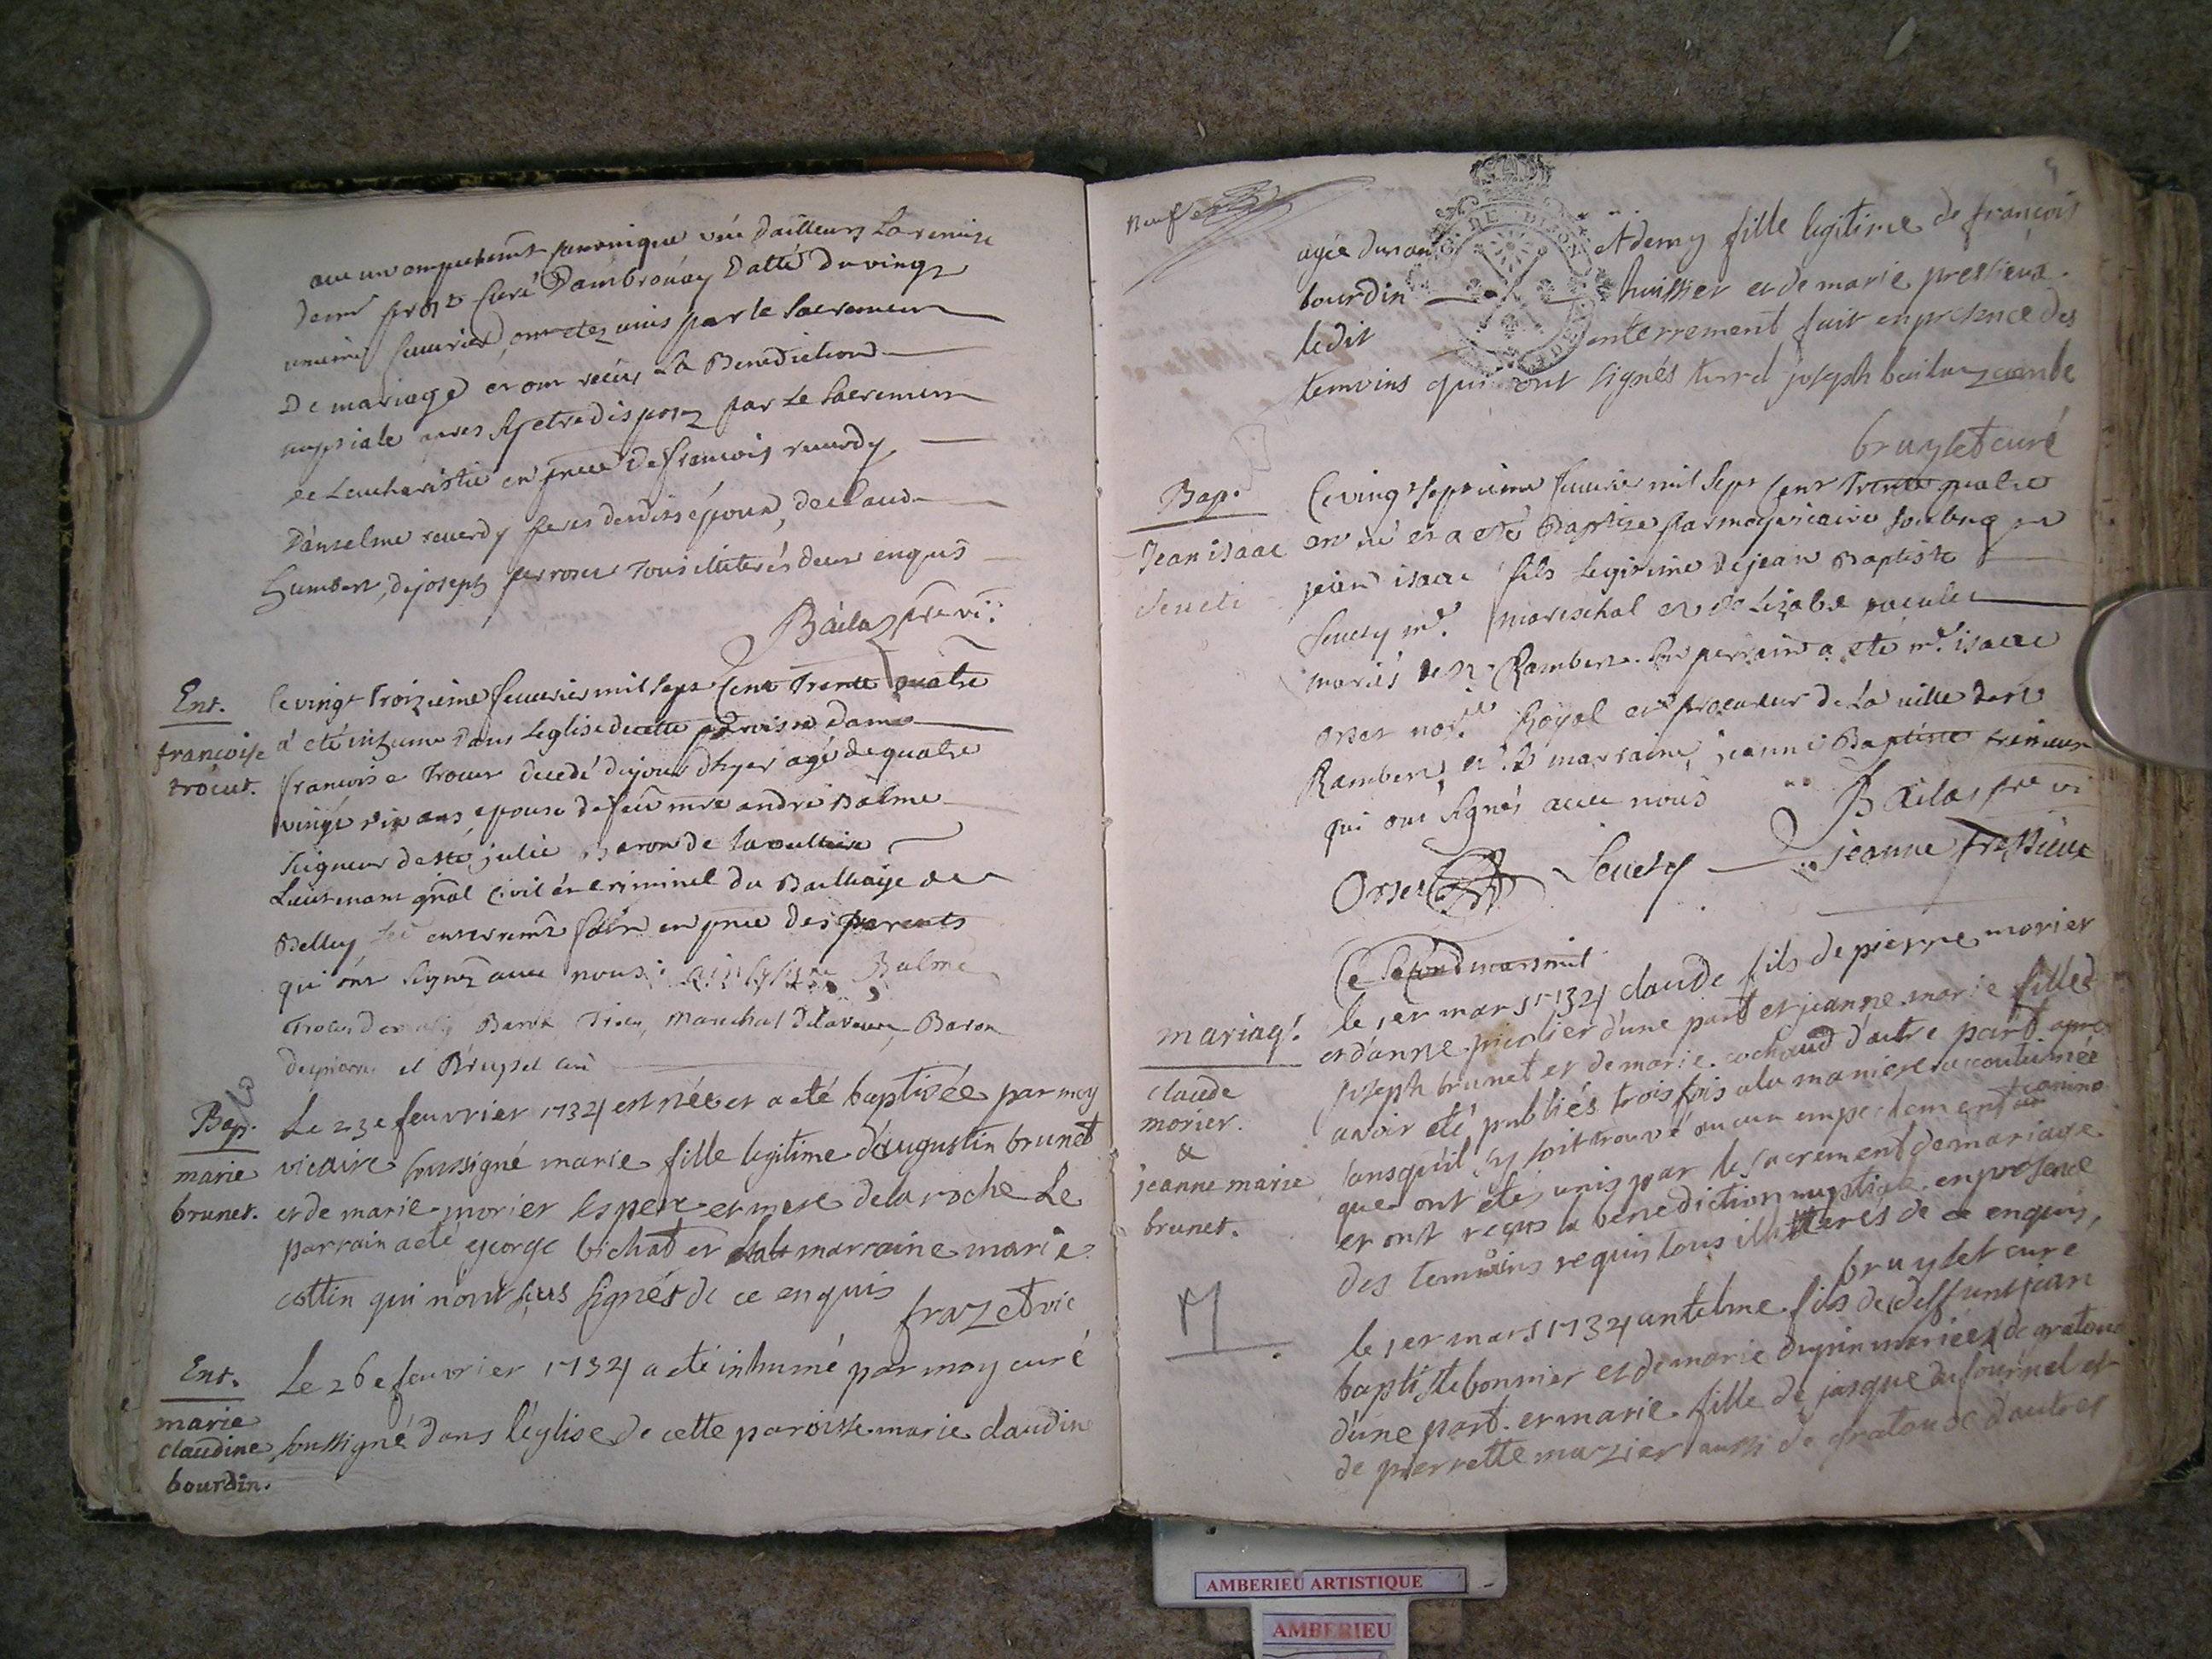 aucun empechement canonique vüe dailleurs La remise
de mr prost Curé Dambronay Datté du vingt
unieme feuvrier, ont etez unis par le Sacrement
De mariage et ont receus La Benediction
nuptiale apres setre disposez par Le Sacrement
de Leucharistie en pnce de francois reuerdy
D'anselme reuerdy freres dudit époux, de claude
humbert, de joseph perroset Tous illiterés deux enquis
Bailaz pre vi:
Ent.
francoise
trocut.
Ce vingt Troizieme feuurier mil sept Cent Trente quatre
a eté inhumé Dans Leglise de cette parroisse dame
francoise Trocut decedé du jour dhyer agé de quatre
vingt dix ans epouse de feu mre andré Balme
Seigneur de ste julie Baron de
Lieutenant gñal Civil et Criminel du Bailliage de
Belley enterremt fait en pnce des parents
qui ont signez auec nous: Balme
Trocu Baron Marechal Baron
et Bruyset curé
Bap.
marie
brunet.
Le 23e feuvrier 1734 est née et a eté baptisée par moy
vicaire soussigné marie fille legitime d'augustin brunet
et de marie morier ses pere et mere de la roche Le
parrain a eté george bichat et la marraine marie
cottin qui n'ont sçus signés de ce enquis
frazet vic
Ent.
marie
claudine
bourdin.
Le 26e feuvrier 1734 a eté inhumé par moy curé
soussigné dans l'église de cette paroisse marie claudine
Neuf
5
agée d'un an et demy fille legitime de françois
bourdin huissier et de marie pressieux
ledit enterrement fait en presence des
temoins qui ont signés joseph bailaz
bruylet curé
Bap.
Jean isaac
Seneti
Ce vingt septieme feuurier mil Sept Cent Trente quatre
est né et a eté Baptize par moy vicaire soubsigne
jean isaac fils Legitime de jean Baptiste
mre mareschal et de
mariés de St Rambert. Son parrain a eté mr isaac
Orset nore Royal et procureur de La ville de St
Rambert et La marraine jeanne Baptiste
qui ont signés auec nous
Bailaz pre vi
Orset jeanne
Ce Second mars mil
mariag.
claude
morier.
&
jeanne marie
brunet.
le 1er mars 1734 claude fils de pierre morier
et d'anne picolier d'une part et jeanne marie fille d
joseph brunet et de marie cochaud d'autre part apres
avoir eté publiés trois fois a la maniere accoutumée
sans qu'il s'y soit trouvé aucun empechement canino
que ont etés unis par le sacrement de mariage
et ont reçus la benediction nuptiale en presence
des temoins requis tous illitterés de ce enquis,
bruylet cure
M.
le 1er mars 1734 antelme fils de deffunt jean
baptiste bonnier et de marie dupin mariez de gratoux
d'une part et marie fille de jasque du fournel et
de pierrette mazier aussi de gratoux d'autre
AMBERIEU ARTISTIQUE
AMBERIEU